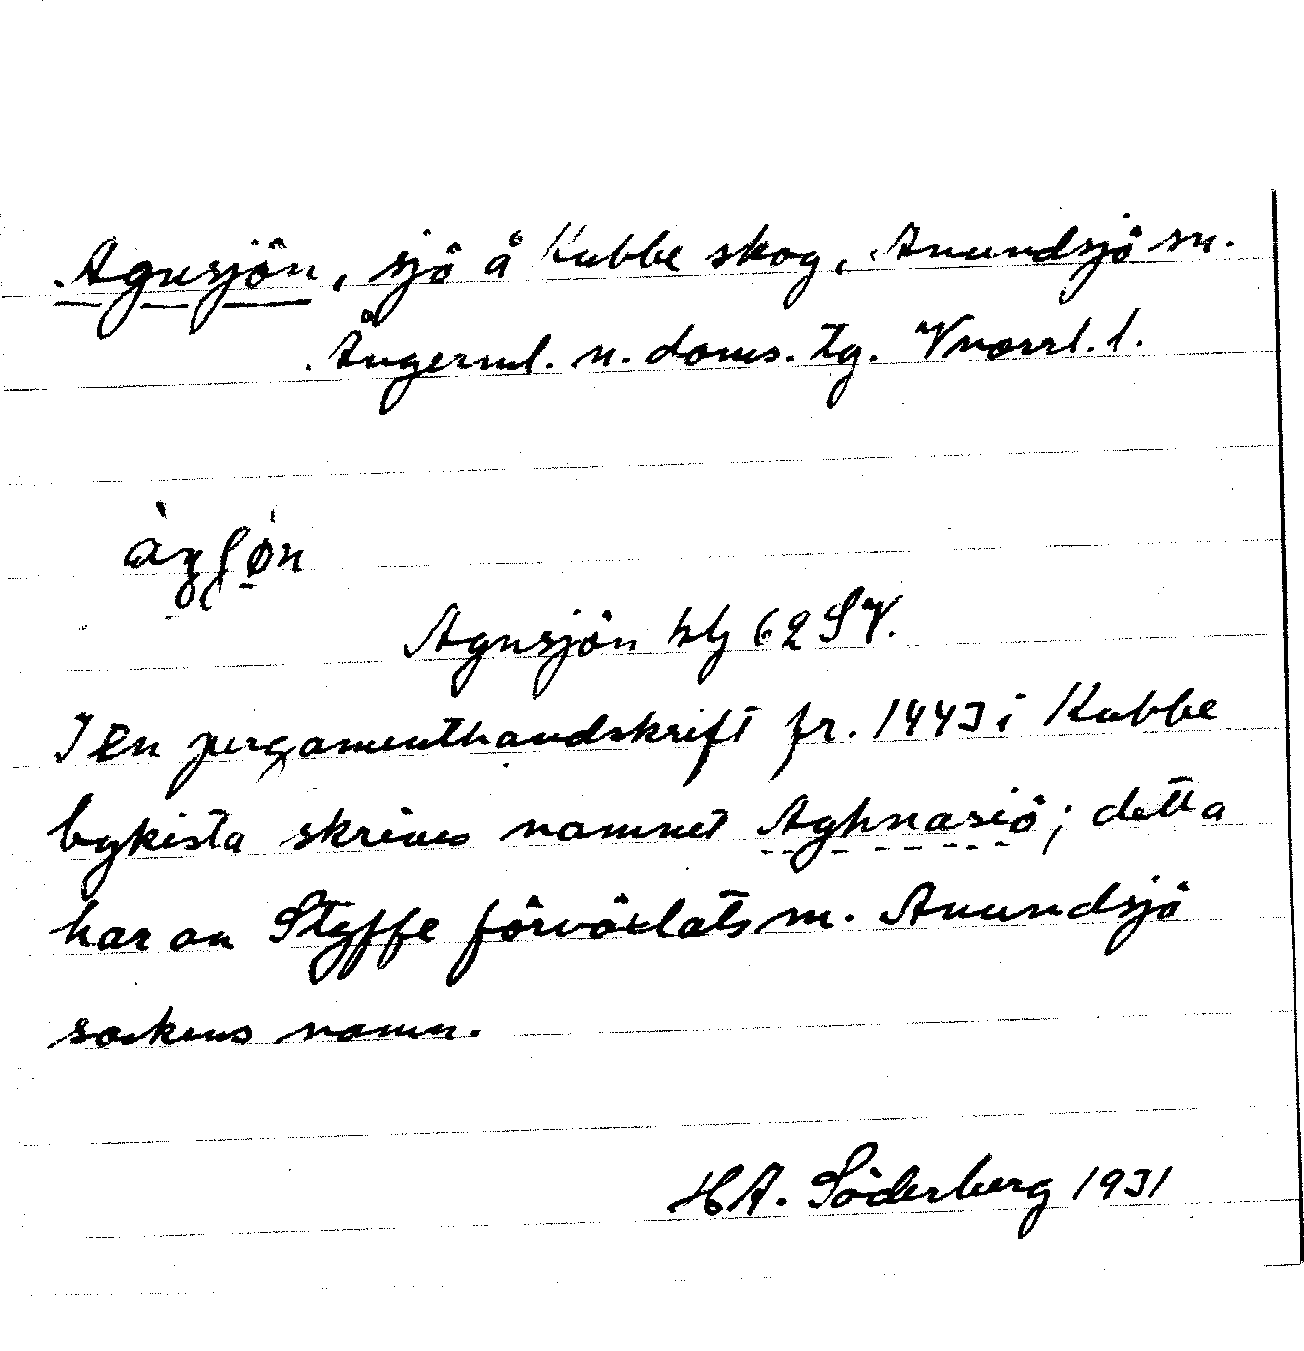 Agnsjön, sjö å Kubbe skog, Anundsjö sn.
Ångerml. n. doms. tg. Vnorrl. l.
Agnsjön klg 62 SV.
I en pergamenthandskrift fr. 1443 i Kubbe
bykista skrives namnet Aghnasiö; detta
har av Styffe förväxlats m. Anundsjö
sockens namn.
HA. Söderberg 1931